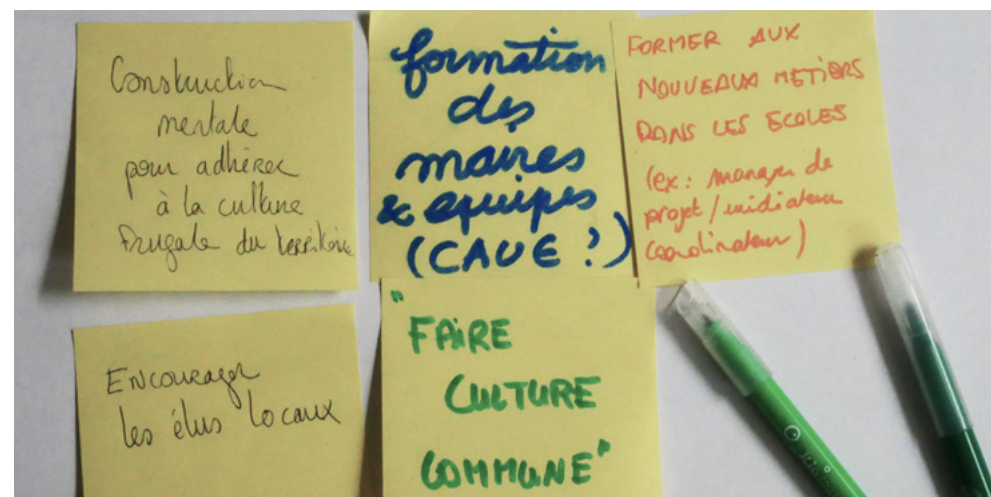 Construction
mentale
pour adhérer
à la culture
frugale du territoire
formation
des
maires
& equipes
(CAUE ?)
FORMER AUX
NOUVEAUX METIERS
DANS LES ECOLES
(ex: manager de
projet / médiateur
coordinateur)
ENCOURAGER
les élus locaux
"FAIRE
CULTURE
COMMUNE"